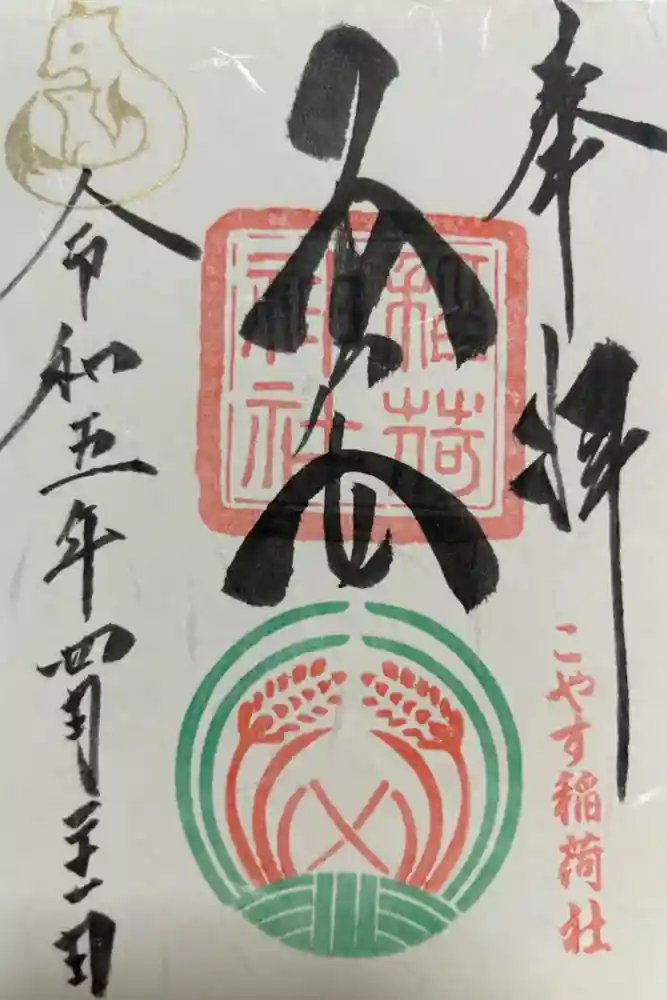 奉拝
こやす稲荷社
安
稲荷
神社
令和五年四月二十一日